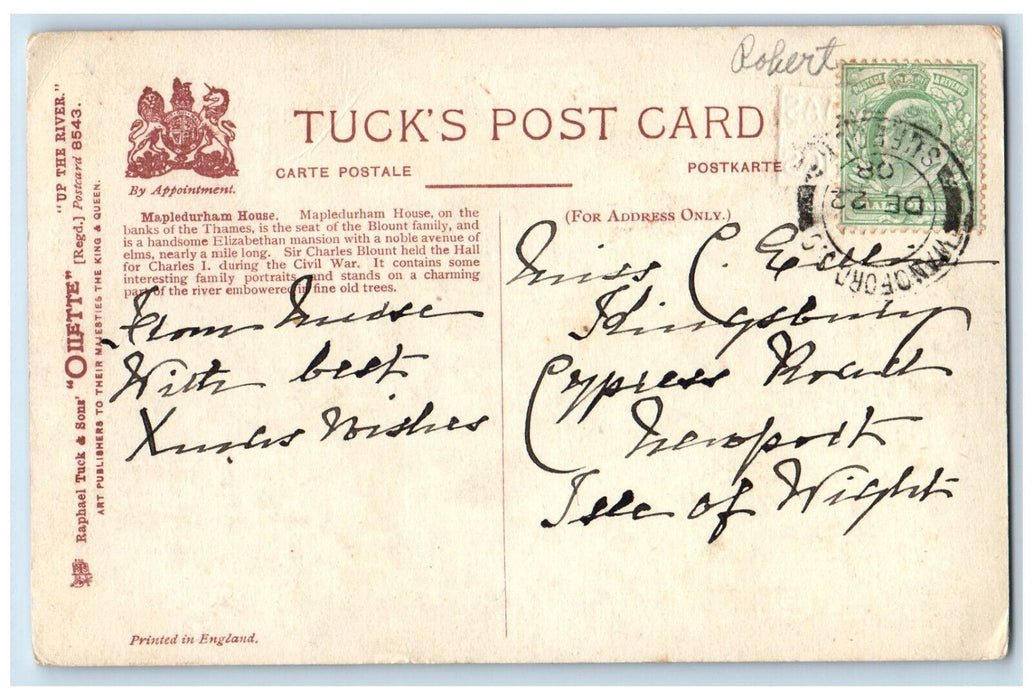 Robert
"UP THE RIVER."
Raphael Tuck & Sons' "OILETTE" [Regd.] Postcard 8543.
ART PUBLISHERS TO THEIR MAJESTIES THE KING & QUEEN.
By Appointment.
TUCK'S POST CARD
CARTE POSTALE
POSTKARTE
POSTAGE & REVENUE
HALFPENNY
DE 22
08
Mapledurham House. Mapledurham House, on the
banks of the Thames, is the seat of the Blount family, and
is a handsome Elizabethan mansion with a noble avenue of
elms, nearly a mile long. Sir Charles Blount held the Hall
for Charles I. during the Civil War. It contains some
interesting family portraits and stands on a charming
part of the river embowered in fine old trees.
(FOR ADDRESS ONLY.)
From Nurse
With best
Xmas Wishes
Miss C.
Kingsbury
Cypress Road
Newport
Isle of Wight
Printed in England.